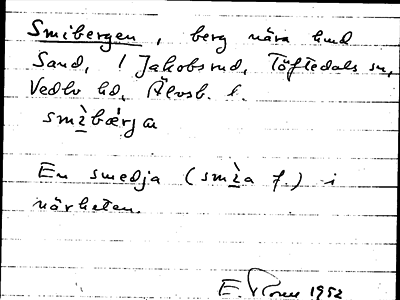 Smibergen, berg nära hmd
Sand, / Jakobsrud, Töftedals sn,
Vedbo hd, Älvsb. l.
smìbærja
En smedja (smìa f.) i
närheten.
E. 1952